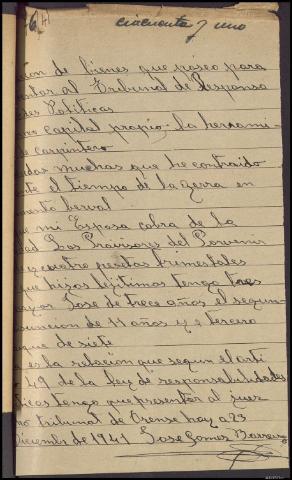 cincuenta y uno
ción de bienes que poseo para
entar al Tribunal de Responsa
des Politicas
ro capital propio la herrami-
e carpintero
udas muchas que he contraido
nte el tiempo de la gerra en
mento berval
ue mi Esposa cobra de la
dad Los Provisores del Porvenir
y cuatro pesetas trimestales
que hijos lejitimos tengo tres
ayor Jose de trece años el segun-
sunción de 11 años y o tercero
que de siete
a es la relación que segun el arti
49 de la ley de responsabilidades
ticas tengo que presentar al juez
ro tribunal de Orense hoy a 23
Diciembre de 1941 Jose Gomes Barreiro